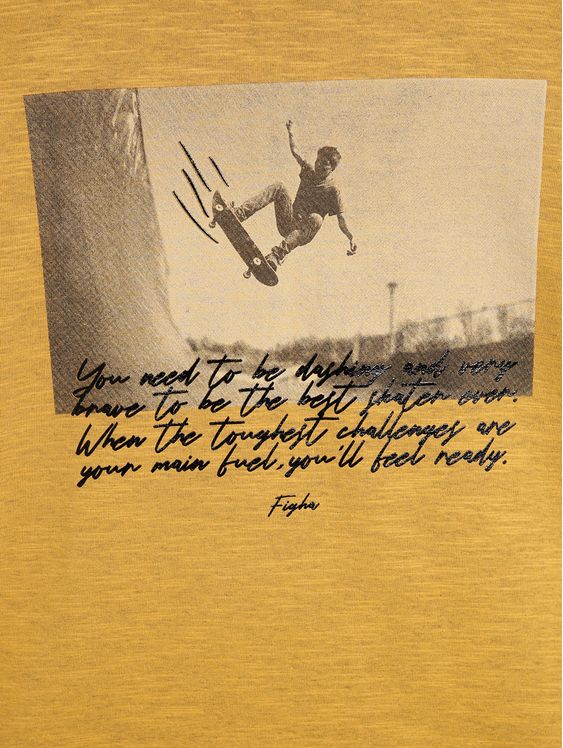 You need to be dashing and very
brave to be the best skater ever.
When the toughest challenges are
your main fuel, you'll feel ready.
Figha